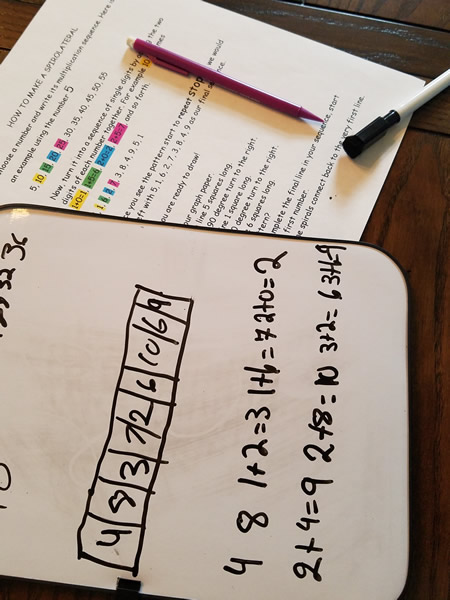 HOW TO MAKE A SPIROLATERAL
number and write its multiplication sequence. Here is
an example using the number 5
5, 10, 15, 20, 25, 30, 35, 40, 45, 50, 55
Now, turn it into a sequence of single digits by the two
digits of each number together. For example 10
1+0=1 1+5=6 2+0=2 2+5=7 and so forth.
1, 6, 2, 7, 3, 8, 4, 9, 5, 1
you see the pattern start to repeat STOP we would
with 5, 1, 6, 2, 7, 3, 8, 4, 9 as our final
you are ready to draw!
graph paper.
line 5 squares long.
90 degree turn to the right.
1 square long.
degree turn to the right.
6 squares long.
the final line in your sequence, start
first number
spirals connect back to the very first line.
32 36
4 8 3 7 2 6 10 6 9
4 8 1+2=3 1+6=7 2+0=2
2+4=9 2+8=10 3+2=6 3+6=9